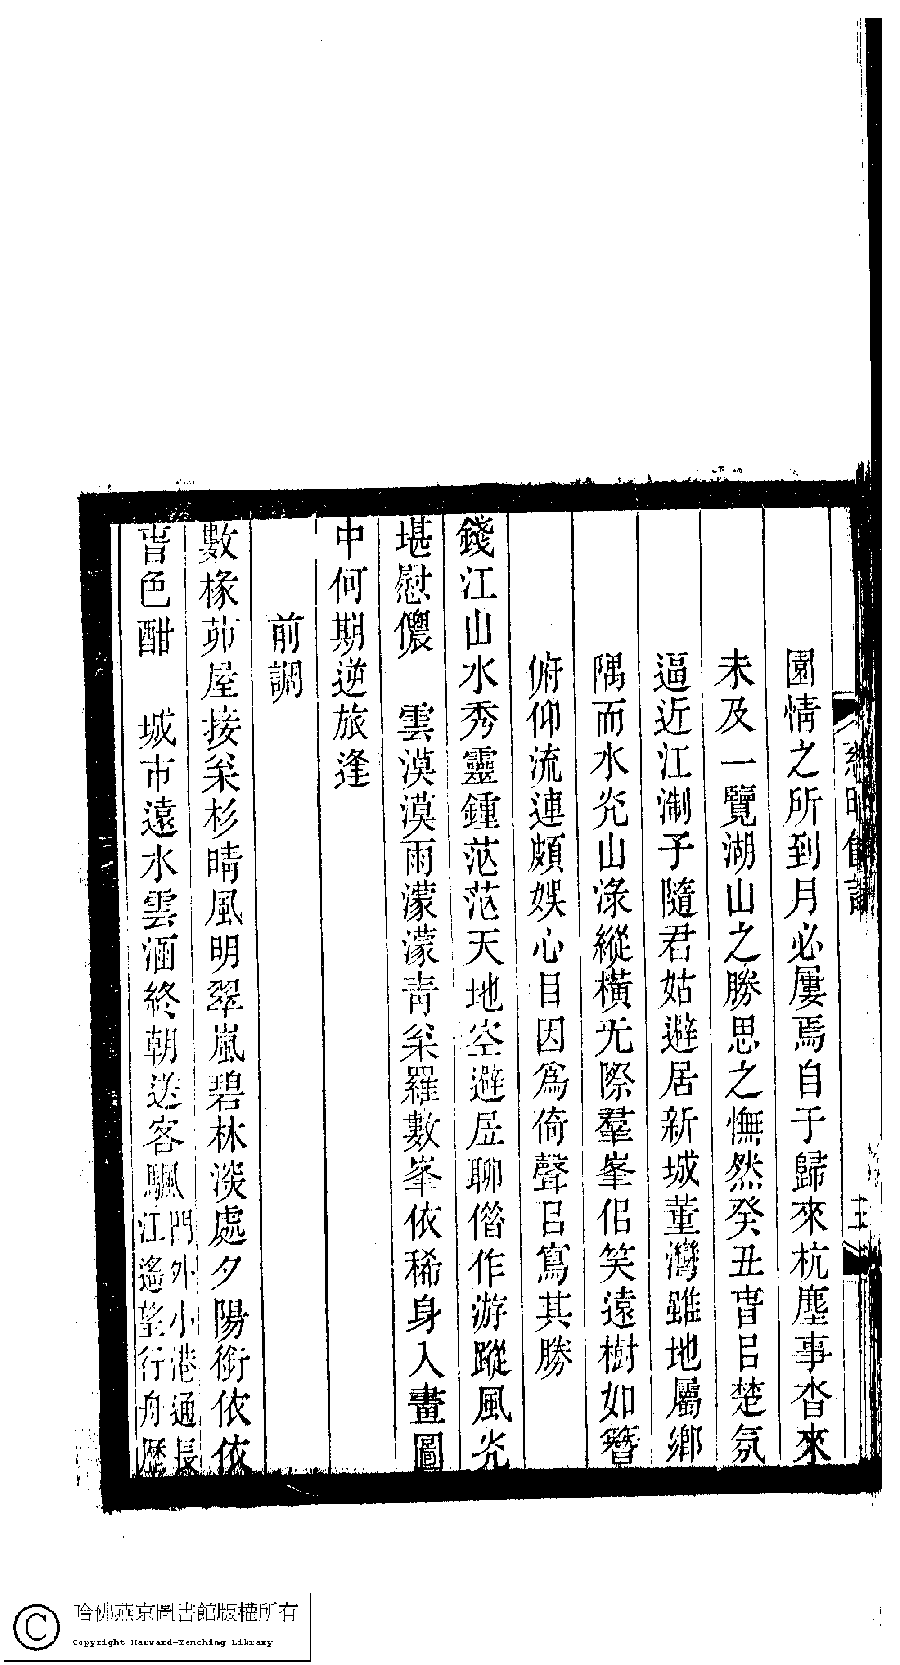 園情之所到月必屢焉自于歸來杭塵事沓來
未及一覽湖山之勝思之憮然癸丑旾㠯楚氛
逼近江淛予隨君姑避居新城董灣雖地屬鄉
隅而水光山渌縱橫无際羣峯佀笑遠樹如簪
俯仰流連頗娛心目因爲倚聲㠯寫其勝
錢江山水秀靈鍾茫茫天地空避居聊僭作游蹤風光
堪慰儂　雲漠漠雨濛濛青來羅數峯依稀身入畫圖
中何期逆旅逢
前調
數椽茆屋接杉晴風明翠嵐碧林淡處夕陽銜依依
旾色酣　城市遠水雲涵終朝送客颿門外小港通長江遙望行舟歷
哈佛燕京圖書館版權所有
Copyright Harvard-Yenching Library